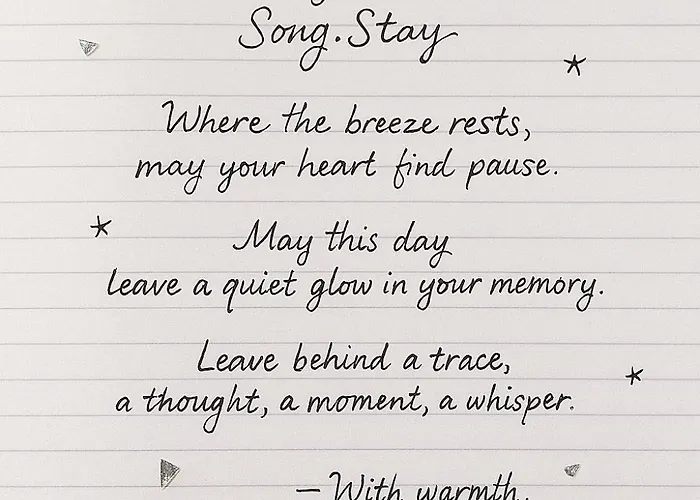 Song.Stay
Where the breeze rests,
may your heart find pause.
May this day
leave a quiet glow in your memory.
Leave behind a trace,
a thought, a moment, a whisper.
— With warmth,